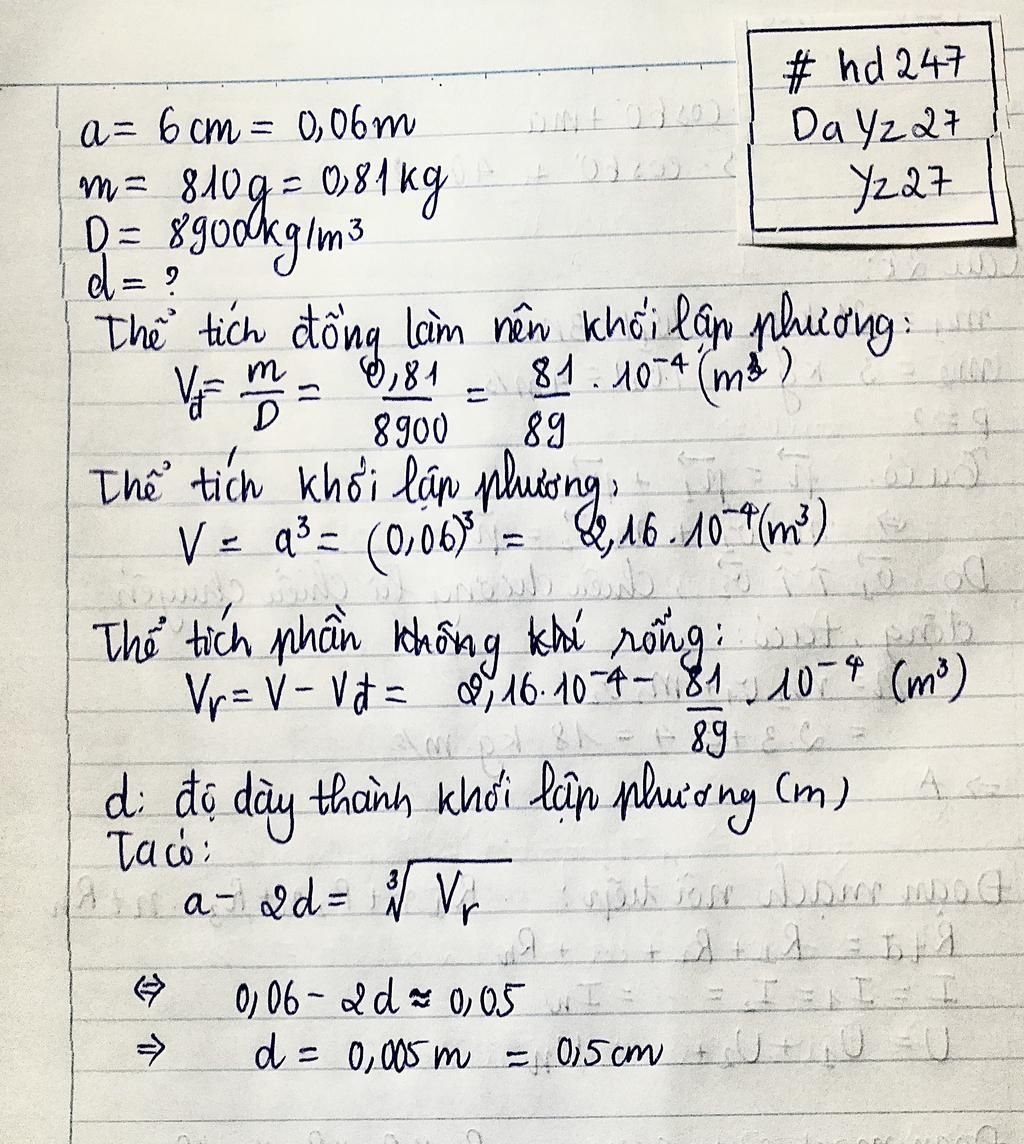 # hd 247
Da Yz 27
Yz 27
a = 6 cm = 0,06 m
m = 810 g = 0,81 kg
D = 8900 kg/m³
d = ?
Thể tích đồng làm nên khối lập phương:
Vđ = m/D = 0,81/8900 = 81/89 . 10⁻⁴ (m³)
Thể tích khối lập phương,
V = a³ = (0,06)³ = 2,16 . 10⁻⁴ (m³)
Thể tích phần không khí rỗng:
Vr = V - Vđ = 2,16.10⁻⁴ - 81/89 . 10⁻⁴ (m³)
d: độ dày thành khối lập phương (m)
Ta có:
a - 2d = ∛Vr
⇔ 0,06 - 2d ≈ 0,05
⇒ d = 0,005 m = 0,5 cm